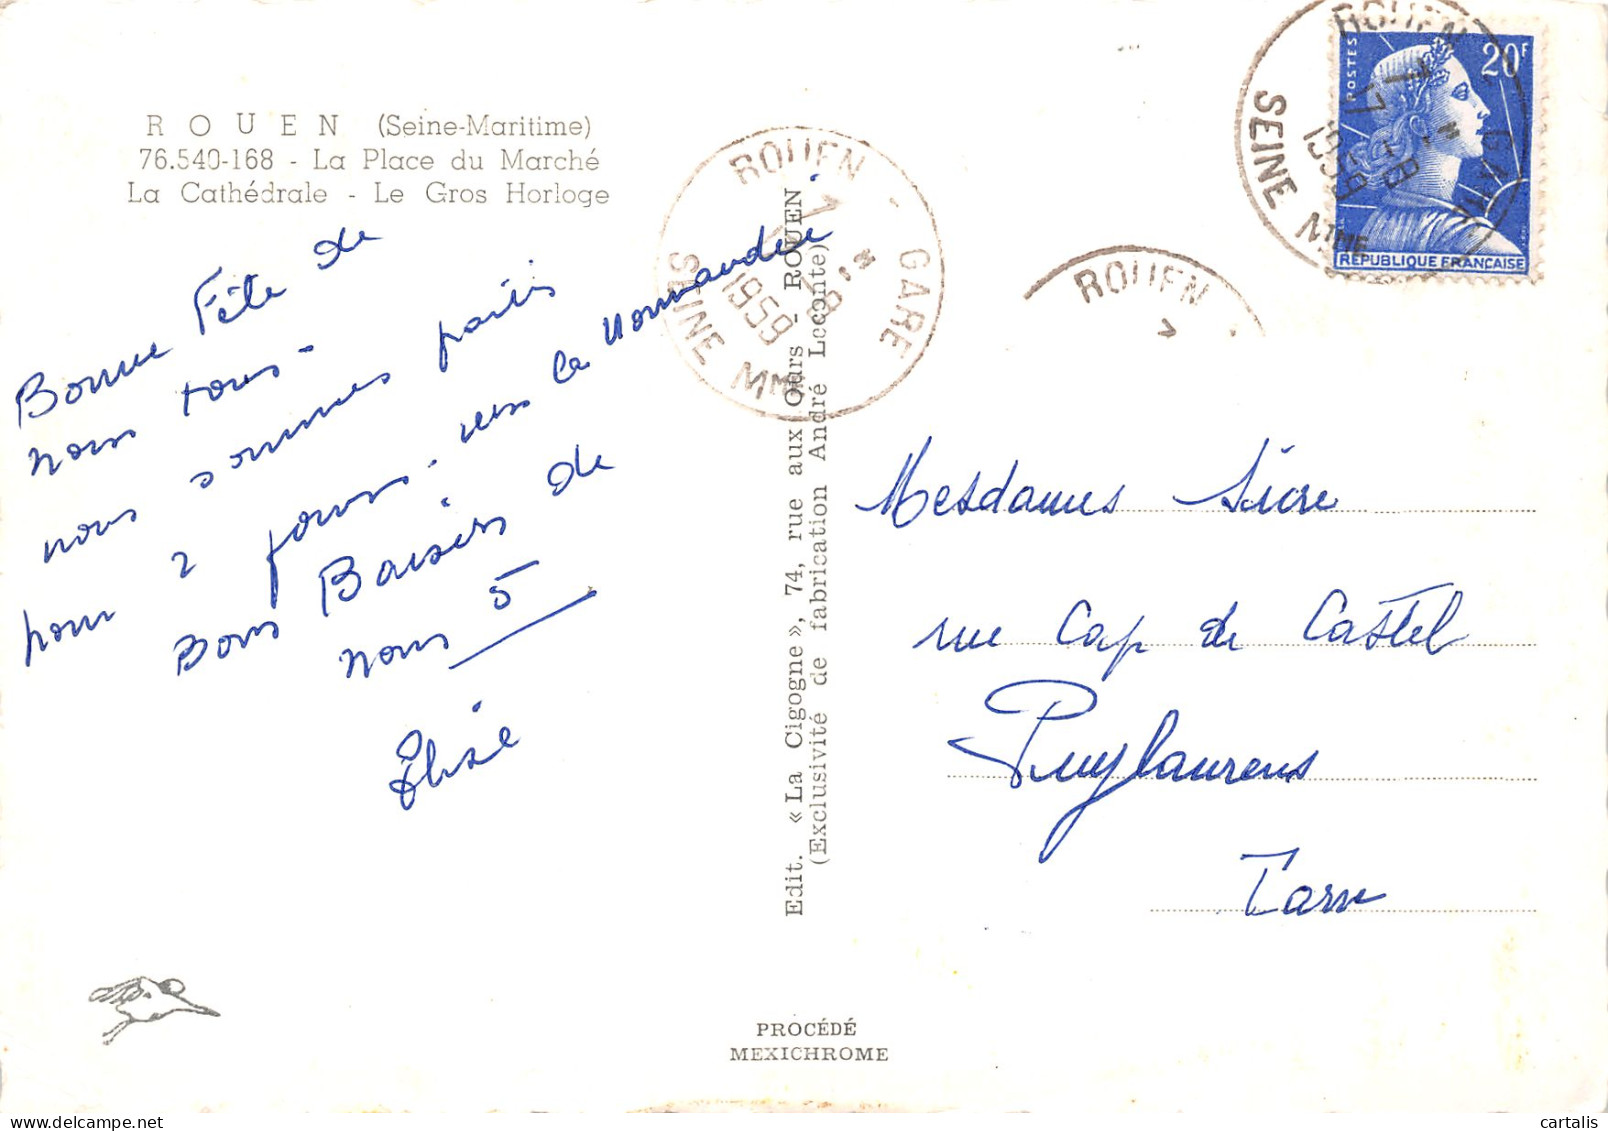 ROUEN (Seine-Maritime)
76.540-168 - La Place du Marché
La Cathédrale - Le Gros Horloge
Bonne Fête de
nous tous.
nous sommes partis
pour 2 jours. vers la Normandie
Bons Baisers de
nous 5
Elise
Edit. « La Cigogne », 74, rue aux Ours - ROUEN
(Exclusivité de fabrication André Leconte)
PROCÉDÉ
MEXICHROME
ROUEN - GARE
17
-8
1959
SEINE MME
ROUEN - GARE
17
-8
1959
SEINE MME
ROUEN
POSTES
20F
RÉPUBLIQUE FRANÇAISE
Mesdames Sicre
rue Cap de Castel
Puylaurens
Tarn
cartalis